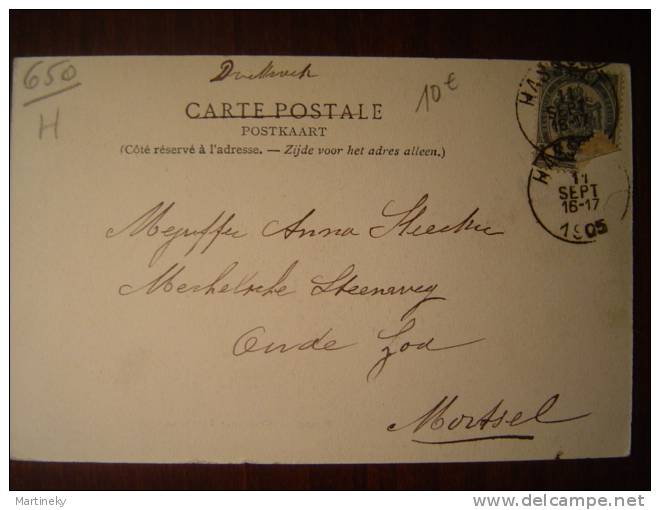 650
H
Drukwerk
10€
CARTE POSTALE
POSTKAART
(Côté réservé à l'adresse. — Zijde voor het adres alleen.)
HASS
11
SEPT
16-17
1905
Mejuffer Anna Sleeckx
Mechelsche Steenweg
Oude God
Mortsel
Martineky
delcampe.net